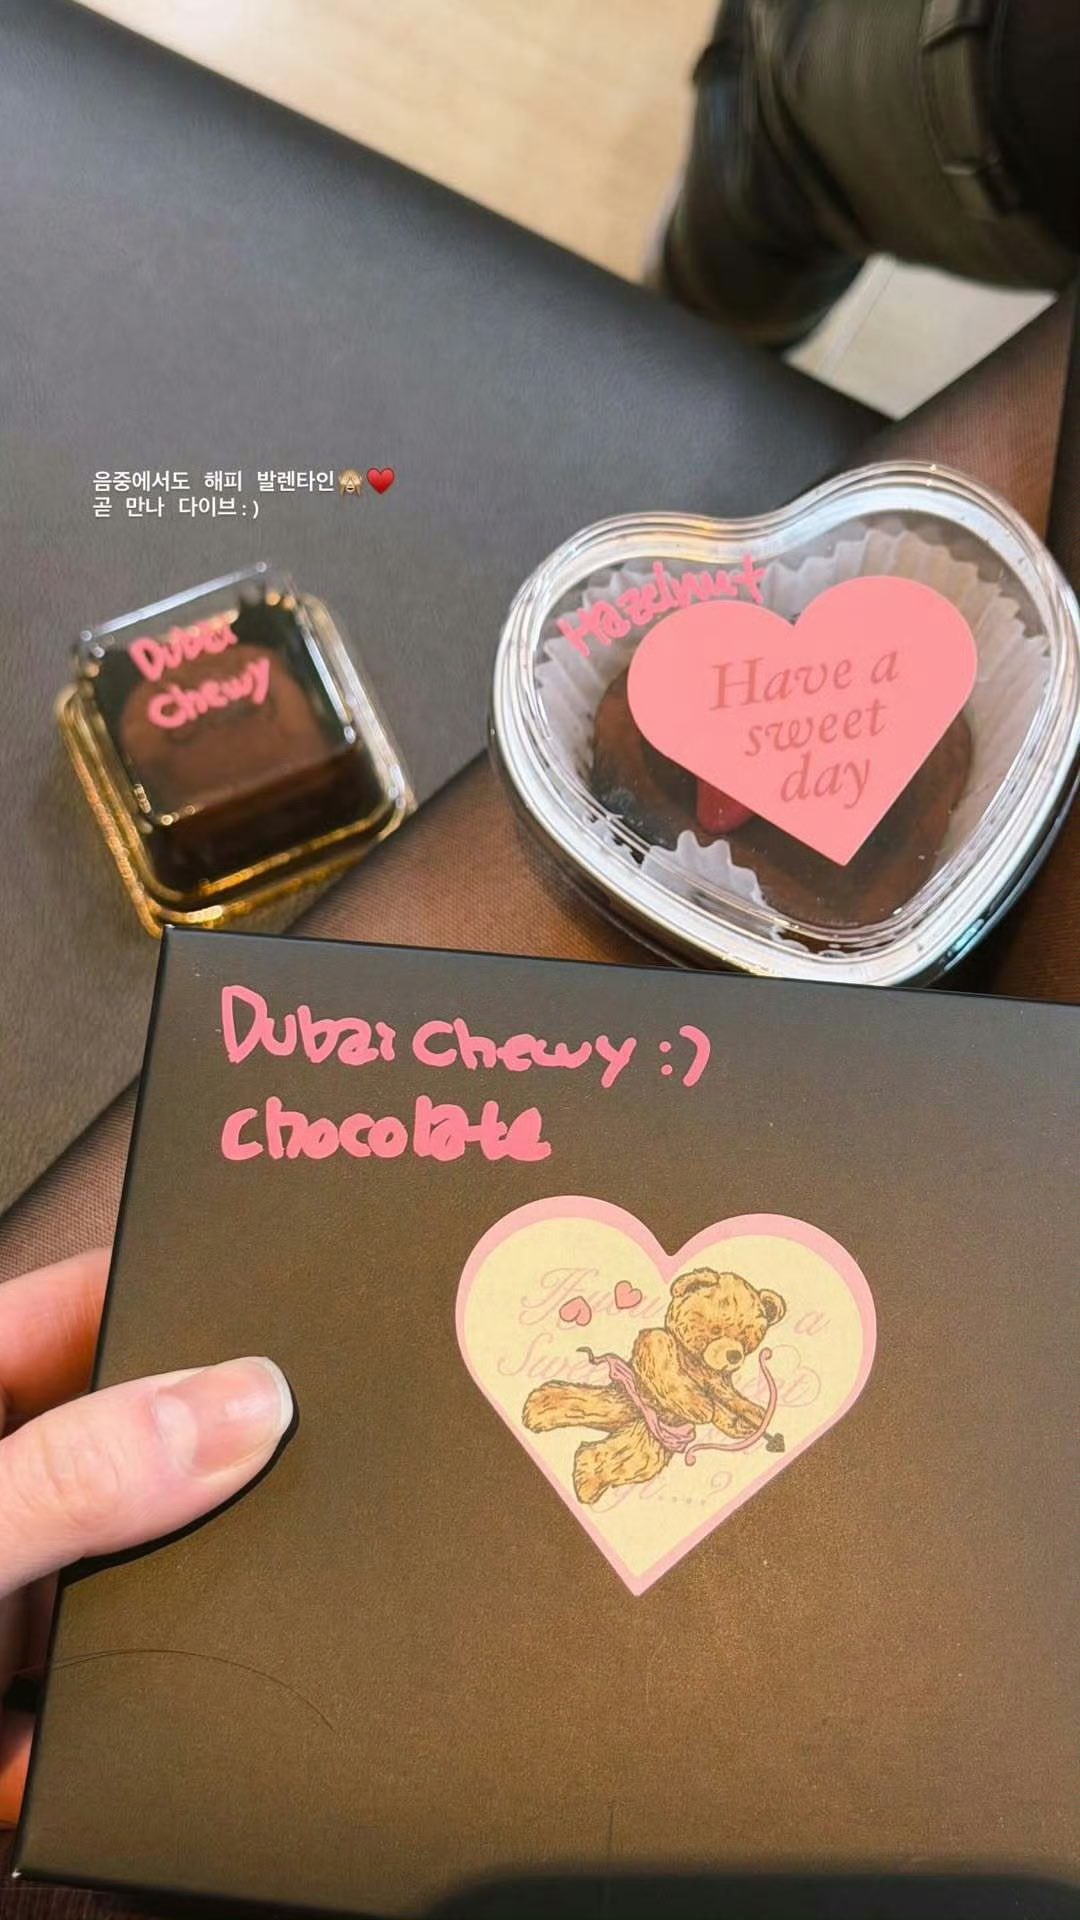 음중에서도 해피 발렌타인🙈♥️
곧 만나 다이브:)
Dubai
chewy
Hazelnut
Have a
sweet
day
Dubai Chewy :)
chocolate
a